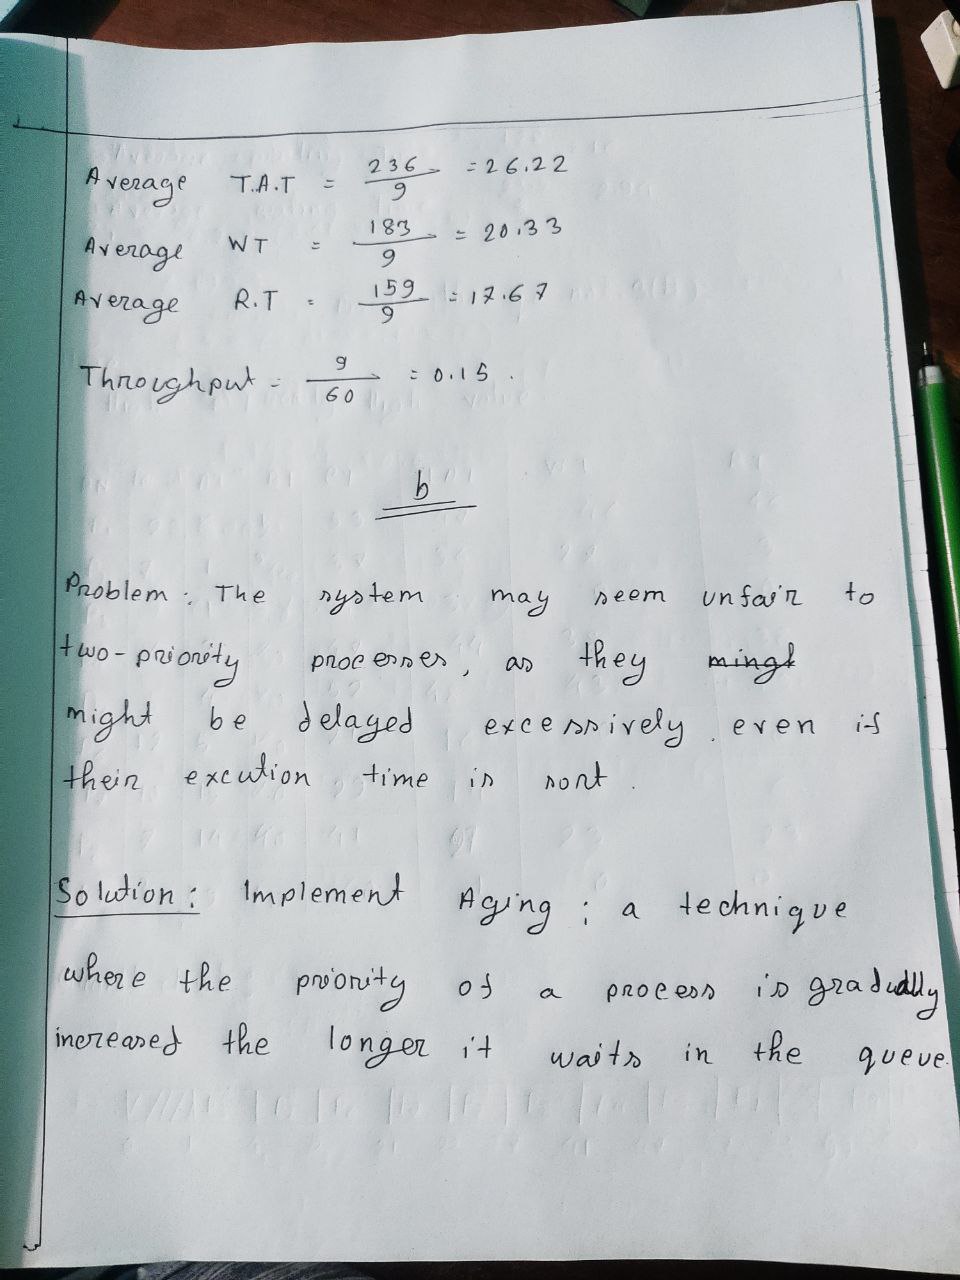 Average T.A.T = 236/9 = 26.22
Average WT = 183/9 = 20.33
Average R.T = 159/9 = 17.67
Throughput = 9/60 = 0.15.
b
Problem: The system may seem unfair to
two-priority processes, as they mingt
might be delayed excessively, even if
their excution time is sort.
Solution: Implement Aging: a technique
where the priority of a process is gradually
increased the longer it waits in the queue.